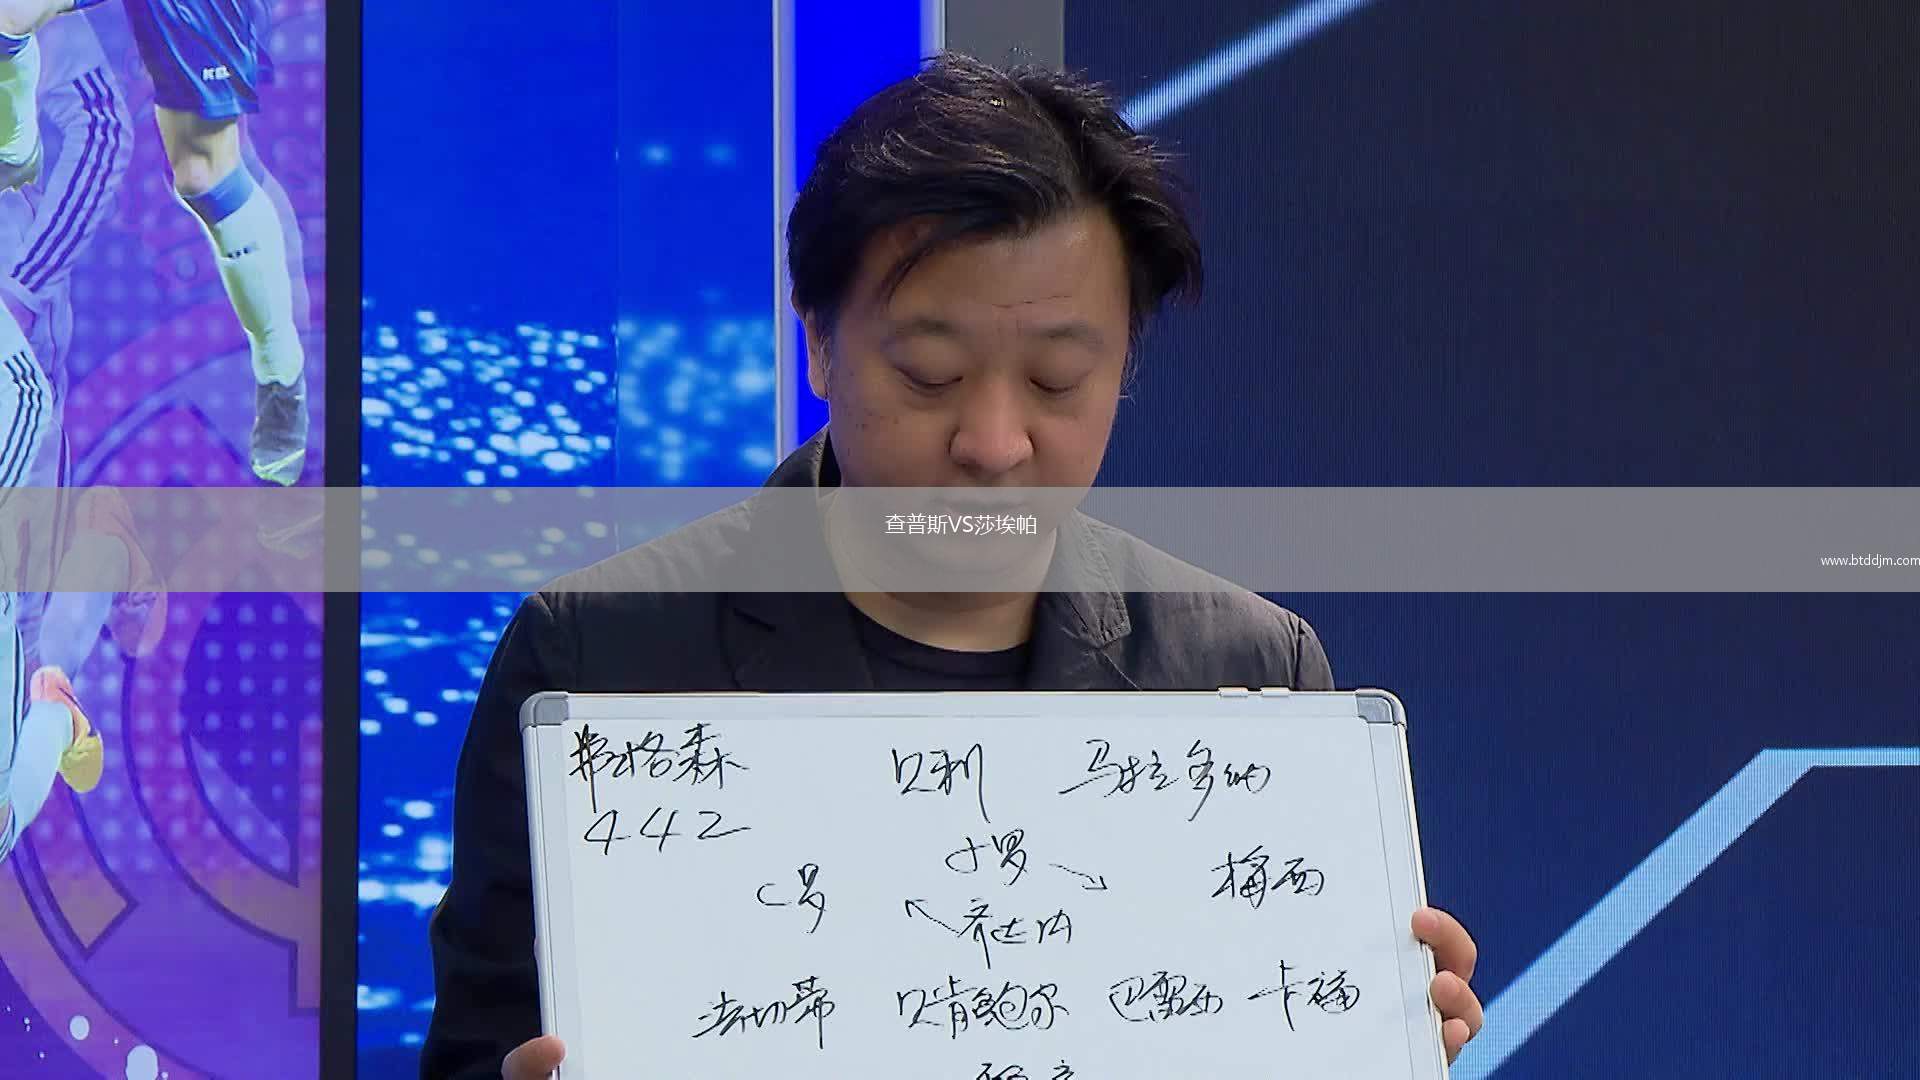 KEL
查普斯VS莎埃帕
www.btddjm.com
弗格森 贝利 马拉多纳
442
小罗
C罗 梅西
齐达内
法切蒂 贝肯鲍尔 巴雷西 卡福